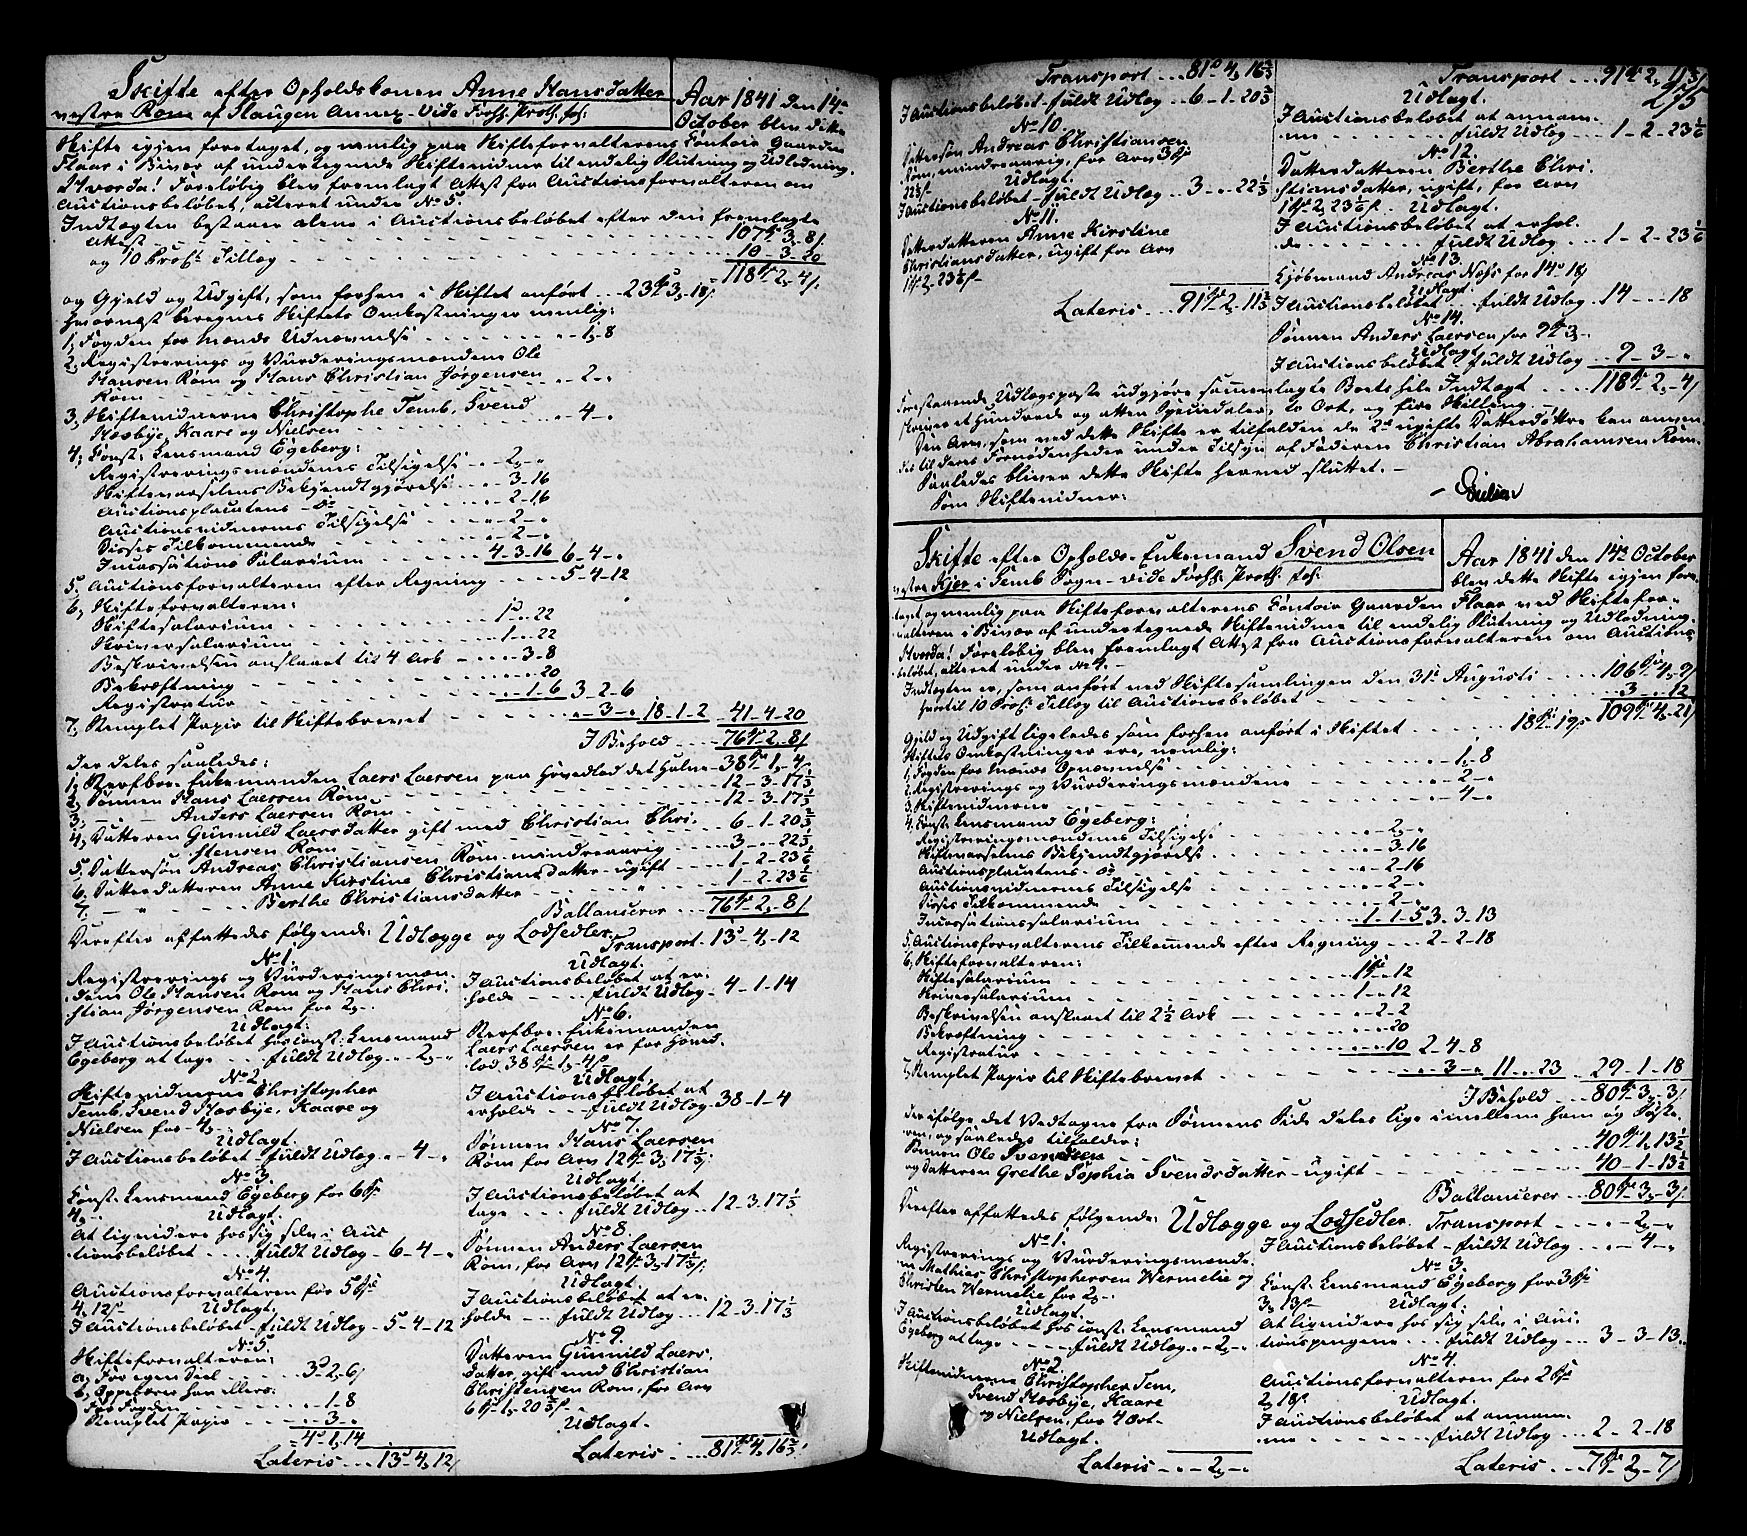 Skifte efter Opholdskonen Anne Hansdatter
vestre Röm af Haugen Annex - Vide Forh: Prot: fol:
Aar 1841 den 14de
October blev dette
Skifte igjen foretaget, og nemlig paa Skifteforvalterens Contoir Gaarden
Flaar i Bivær af undertegnede Skiftevidner til endelig Slutning og Udlodning.
Hvorda! Foreløbig blev fremlagt Attest fra Auctionsforvalteren om
Auctionsbeløbet, acteret under No 5.
Indtægten bestaaer alene i Auctionsbeløbet efter den fremlagte
Attest 107 - 3 - 8
og 10 Procent Tillæg 10 - 3 - 20
118 - 2 - 4
og Gjeld og Udgift, som forhen i Skiftet anført 23 - 3 - 18
hvornæst beregnes Skiftets Omkostninger nemlig:
1, Fogden for Mænds Udnævnelse " - 1 - 8
2, Registrerings og Vurderingsmændene Ole
Hansen Röm og Hans Christian Jörgensen
Röm " - 2 - "
3, Skiftevidnerne Christopher Temb, Svend
Hæsbye, Kaare og Nielsen " - 4 - "
4, Const: Lensmand Egeberg:
Registreringsmændenes Tilsigelse " - 2 - "
Skiftevarselens Bekjendtgjørelse " - 3 - 16
Auctionsplacatens - Do " - 2 - 16
Auctionsvidnernes Tilsigelse " - 2 - "
Disses Tilkommende " - 2 - "
Incassations Salarium 4 - 3 - 16 6 - 4 - "
5, Auctionsforvalteren efter Regning 5 - 4 - 12
6, Skifteforvalteren:
Skiftesalarium 1 - " - 22
Skriversalarium 1 - " - 22
Beskrivelsen anslaaet til 4 Ark " - 3 - 8
Bekræftning " - " - 20
Registratur " - 1 - 6 3 - 2 - 6
7, Stemplet Papir til Skiftebrevet " - 3 - " 18 - 1 - 2 41 - 4 - 20
I Behold 76 - 2 - 8
der deles saaledes:
1, Sterfboe Enkemanden Laers Laersen paa Hovedlod det Halve 38 - 1 - 4
2, Sønnen Hans Laersen Röm 12 - 3 - 17 1/3
3, - - Anders Laersen Röm 12 - 3 - 17 1/3
4, Datteren Gunnild Laersdatter gift med Christian Chri-
stensen Röm 6 - 1 - 20 2/3
5, Dattersøn Andreas Christiansen Röm - mindreaarig 3 - " - 22 1/3
6, Datterdatteren Anne Kirstine Christiansdatter - ugift 1 - 2 - 23 1/6
7, - " - Berthe Christiansdatter - " - 1 - 2 - 23 1/6
Ballancerer 76 - 2 - 8
Derefter affattedes følgende: Udlægge og Lodsedler.
No 1.
Registrerings og Vurderingsmæn-
dene Ole Hansen Röm og Hans Chri-
stian Jörgensen Röm for 2 -
Udlagt:
I Auctionsbeløbet hos Const: Lensmand
Egeberg at tage fuldt Udlæg " - 2 - "
No 2.
Skiftevidnerne Christopher
Temb, Svend Hæsbye, Kaare og
Nielsen for - 4 -
Udlagt.
I Auctionsbeløbet fuldt Udlæg " - 4 - "
No 3.
Const: Lensmand Egeberg for 6
4 - Udlagt.
At liqvidere hos sig selv i Auc
tionsbeløbet fuldt Udlæg - 6 - 4 - "
No 4.
Auctionsforvalteren for 5
4, 12 Udlagt.
I Auctionsbeløbet - fuldt Udlæg - 5 - 4 - 12
No 5.
Skifteforvalteren:
a, For egen Deel 3 - 2 - 6
b, Oppebærer han ellers:
For Fogden " - 1 - 8
Stemplet Papir " - 3 - "
4 - 1 - 14
Lateris 13 - 4 - 12
Transport 13 - 4 - 12
Udlagt.
I Auctionsbeløbet at er-
holde fuldt Udlæg 4 - 1 - 14
No 6.
Sterfboe Enkemanden
Laers Laersen er for Hoved-
lod 38 - 1 - 4
Udlagt.
I Auctionsbeløbet at
erholde fuldt Udlæg 38 - 1 - 4
No 7.
Sønnen Hans Laersen
Röm for Arv 12 - 3 - 17 1/3
Udlagt.
I Auctionsbeløbet at
tage fuldt Udlæg 12 - 3 - 17 1/3
No 8.
Sønnen Anders Laersen
Röm, for Arv 12 - 3 - 17 1/3
Udlagt.
I Auctionsbeløbet at er-
holde fuldt Udlæg 12 - 3 - 17 1/3
No 9.
Datteren Gunnild Laers-
datter, gift med Christian
Christensen Röm, for Arv
6 - 1 - 20 2/3
Udlagt.
Lateris 81 - 4 - 16 2/3
Transport 81 - 4 - 16 2/3
I Auctionsbeløbet - fuldt Udlæg 6 - 1 - 20 2/3
No 10.
Dattersøn Andreas Christiansen
Röm, mindreaarig, for Arv 3
22 1/3 Udlagt.
I Auctionsbeløbet - fuldt Udlæg 3 - " - 22 1/3
No 11.
Datterdatteren Anne Kirstine
Christiansdatter, ugift for Arv
1 - 2 - 23 1/6
Lateris 91 - 2 - 11 2/3
275
Transport 91 - 2 - 11 2/3
Udlagt.
I Auctionsbeløbet at annam-
me fuldt Udlæg 1 - 2 - 23 1/6
No 12.
Datterdatteren Berthe Chri-
stiansdatter, ugift, for Arv
1 - 2 - 23 1/6 Udlagt.
I Auctionsbeløbet at erhol-
de fuldt Udlæg 1 - 2 - 23 1/6
No 13.
Kjøbmand Andreas Næss for 14 - 18
Udlagt
I Auctionsbeløbet fuldt Udlæg 14 - " - 18
No 14.
Sønnen Anders Laersen for 9 - 3 -
Udlagt
I Auctionsbeløbet fuldt Udlæg 9 - 3 - "
118 - 2 - 4
Forestaaende Udlægsposte udgjøre sammenlagte Boets hele Indtægt
skriver et Hundrede og atten Speciedaler, to Ort, og fire Skilling.
Den Arv, som ved dette Skifte er tilfalden de 2de ugifte Datterdøttre kan anven-
des til deres Fornødenheder under Tilsyn af Faderen Christian Abrahamsen Röm.
Saaledes bliver dette Skifte herved sluttet. -
Som Skiftevidner:
Skifte efter Opholds-Enkemand Svend Olsen
vestre Kjer i Temb Sogn - vide Forh: Proth: fol:
Aar 1841 den 14de October
blev dette Skifte igjen fore-
taget og nemlig paa Skifteforvalterens Contoir Gaarden Flaar ved Skiftefor-
valteren i Bivær af undertegnede Skiftevidner til endelig Slutning og Udlodning.
Hvorda! Foreløbig blev fremlagt Attest fra Auctionsforvalteren om Auctions-
beløbet, acteret under No 4. -
Indtægten er, som anført ved Skiftesamlingen den 31te Augusti 106 - 4 - 9
hertil 10 Procent Tillæg til Auctionsbeløbet 3 - " - 12
109 - 4 - 21
Gjeld og Udgift ligeledes som forhen anført i Skiftet 18 - " - 19
Skiftets Omkostninger ere, nemlig:
1, Fogden for Mænds Opnævnelse " - 1 - 8
2, Registrerings og Vurderingsmændene " - 2 - "
3, Skiftevidnerne " - 4 - "
4, Const: Lensmand Egeberg:
Registreringsmændenes Tilsigelse " - 2 - "
Skiftevarselens Bekjendtgjørelse " - 3 - 16
Auctionsplacatens - Do " - 2 - 16
Auctionsvidnernes Tilsigelse " - 2 - "
Disses Tilkommende " - 2 - "
Incassationssalarium 1 - 1 - 5 3 - 3 - 13
5, Auctionsforvalterens Tilkommende efter Regning 2 - 2 - 18
6, Skifteforvalteren:
Skiftesalarium 1 - " - 12
Skriversalarium 1 - " - 12
Beskrivelsen anslaaet til 2 1/2 Ark " - 2 - 2
Bekræftning " - " - 20
Registratur " - " - 10 2 - 4 - 8
7, Stemplet Papir til Skiftebrevet " - 3 - " 11 - " - 23 29 - 1 - 18
I Behold 80 - 3 - 3
der ifølge det Vedtagne fra Sønnens Side deles lige imellem ham og Søste-
ren, og saaledes tilfalder:
Sønnen Ole Svendsen 40 - 1 - 13 1/2
og Datteren Grethe Sophia Svendsdatter - ugift 40 - 1 - 13 1/2
Ballancerer 80 - 3 - 3
Derefter affattedes følgende: Udlægge og Lodsedler.
No 1.
Registrerings og Vurderingsmænde-
ne Mathias Christophersen Wermelie og
Christen Wermelie for 2 -
Udlagt.
I Auctionsbeløbet hos Const: Lensmand
Egeberg at tage fuldt Udlæg " - 2 - "
No 2.
Skiftevidnerne Christopher Tem,
Svend Hæsbye, Kaare
og Nielsen, for 4 Ort -
Udlagt.
Lateris " - 2 - "
Transport " - 2 - "
I Auctionsbeløbet - fuldt Udlæg " - 4 - "
No 3.
Const: Lensmand Egeberg for 3
3, 13 Udlagt.
At liqvidere hos sig selv i Auc-
tionspengene fuldt Udlæg 3 - 3 - 13
No 4.
Auctionsforvalteren for 2
2, 18 Udlagt.
I Auctionsbeløbet at annam-
me fuldt Udlæg 2 - 2 - 18
Lateris 7 - 2 - 7